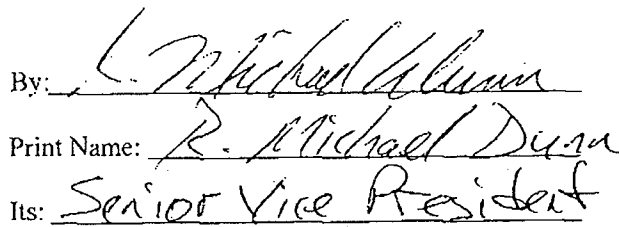 By: R. Michael Dunn
Print Name: R. Michael Dunn
Its: Senior Vice President